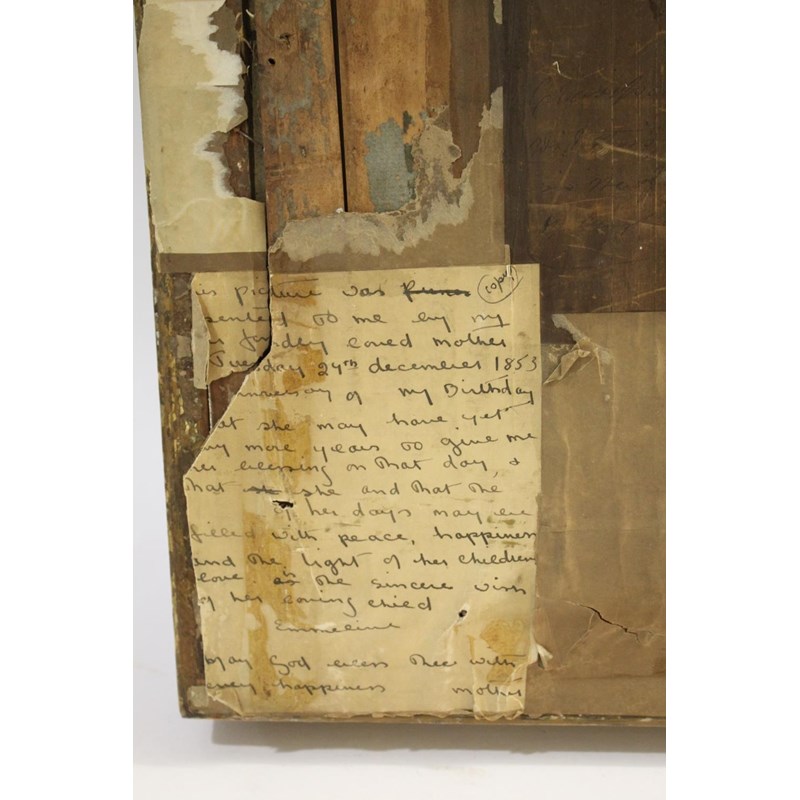 (copy)
is picture was
sented to me by my
r fondly loved mother
Tuesday 24th december 1853
nniversary of my Birthday
at she may have yet
ny more years to give me
her blessing on that day, &
that she and that the
of her days may be
filled with peace, happiness
and the light of her children
love is the sincere wish
of her loving child
Emmeline
May God bless Thee with
every happiness mother